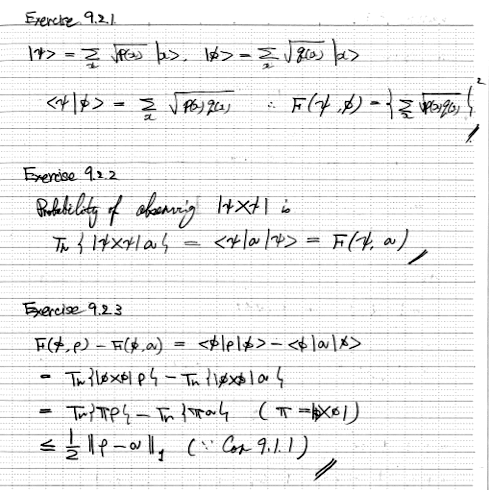 Exercise 9.2.1
|ψ> = Σ_x √p(x) |x>, |φ> = Σ_x √q(x) |x>
<ψ|φ> = Σ_x √p(x)q(x) ∴ F(ψ,φ) = {Σ_x √p(x)q(x)}²
Exercise 9.2.2
Probability of observing |ψXψ| is
Tr{|ψXψ|ω} = <ψ|ω|ψ> = F(ψ,ω)
Exercise 9.2.3
F(φ,ρ) - F(φ,ω) = <φ|ρ|φ> - <φ|ω|φ>
= Tr{|φXφ|ρ} - Tr{|φXφ|ω}
= Tr{πρ} - Tr{πω} (π = |φXφ|)
≤ 1/2 ||ρ - ω||₁ (∵ Cor 9.1.1)